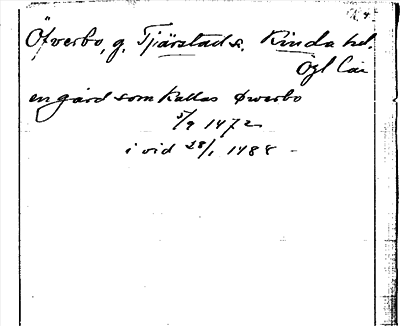 Öfverbo, g. Tjärstad s. Kinda hd.
Ögl län
en gård som kallas Øwerbo
5/9 1472
i vid 28/1 1488 -